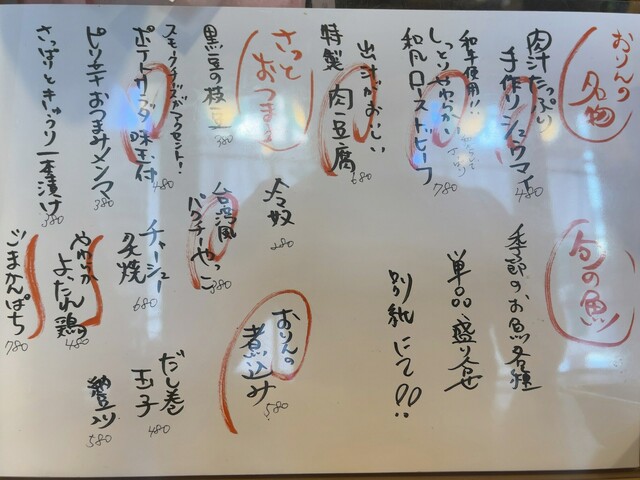 おりんの
名物
肉汁たっぷり
手作りシュウマイ
480
和牛使用!!
しっとりやわらかい
和風ローストビーフ
780
出汁がおいしい
特製 肉豆腐
680
さっと
おつまみ
黒豆の枝豆
380
スモークチーズがアクセント!
ポテトサラダ 味玉付
480
ピリ辛 おつまみメンマ
380
さっぱーときゅうり一本漬け
380
旬の魚
季節のお魚各種
単品、盛り合せ
別紙にて!!
冷奴
280
台湾風
パクチーやっこ
380
チャーシュー
炙焼
680
やわらか
よだれ鶏
480
ごまかんぱち
780
おりんの
煮込み
580
だし巻
玉子
480
納豆入り
580